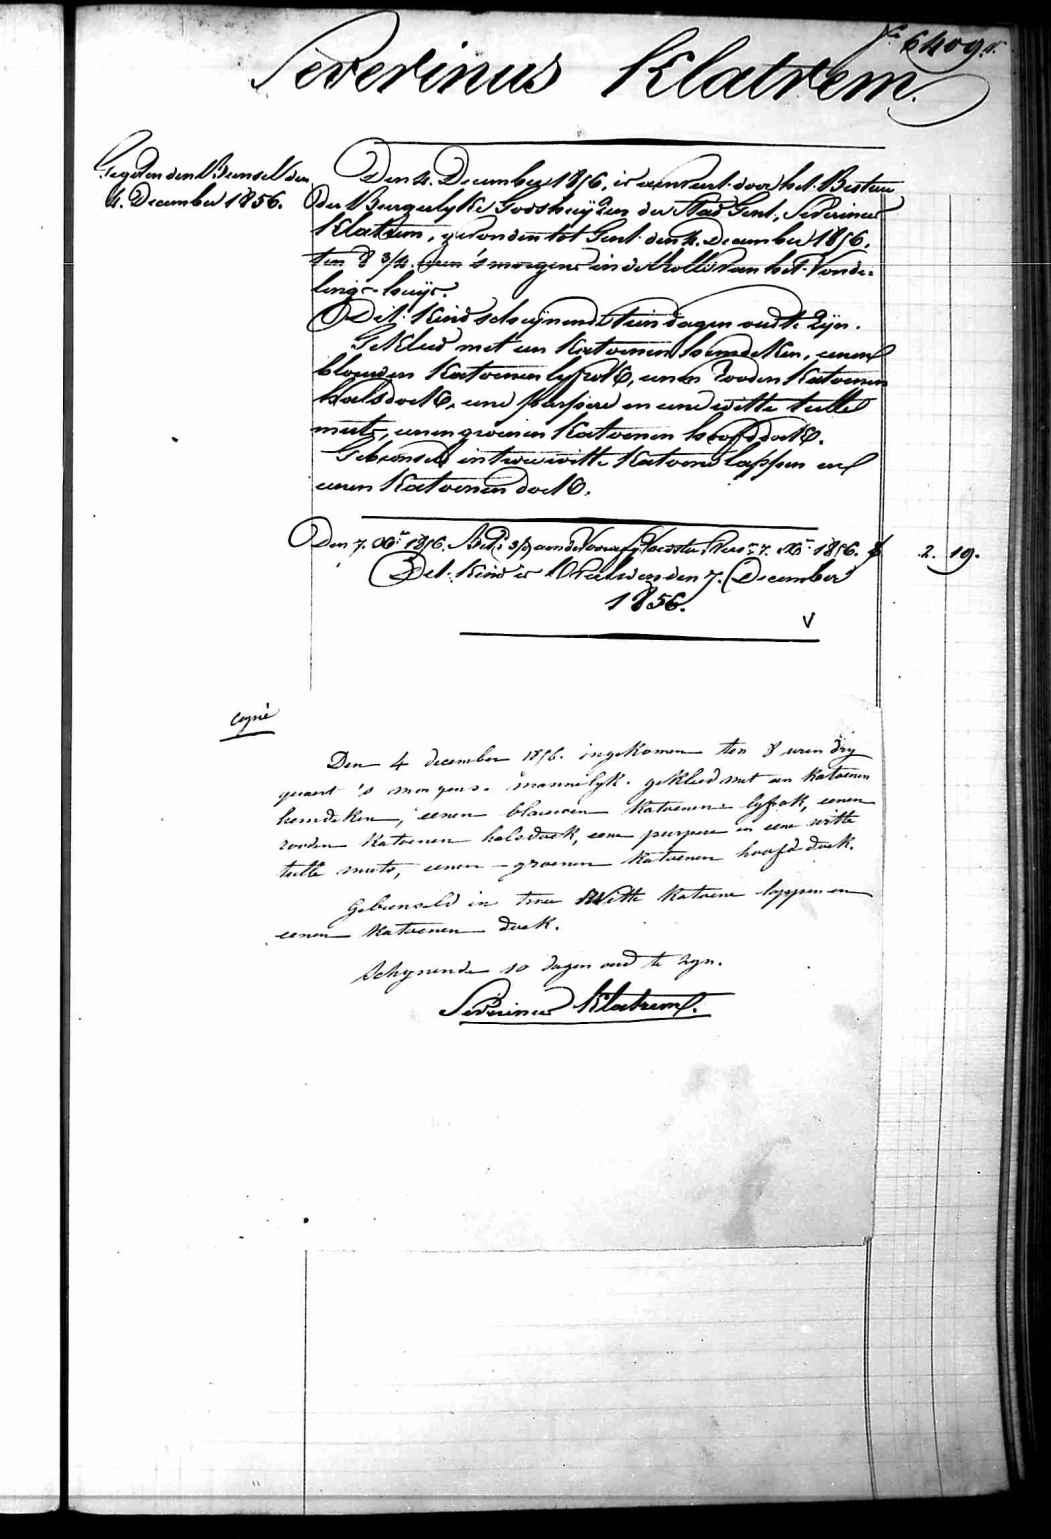 N.º 6409.
Severinus Klatrem.
Gegeven den Bunsel den
4. December 1856.
Den 4. December 1856, is aenveert door het Bestuer
der Burgerlyke Godshuyzen der Stad Gent, Severinus
Klatrem, gevonden tot Gent den 4. December 1856,
ten 8 3/4 uren 's morgens in de Rolle van het Vonde-
lings-huys.
Dit Kind schynende tien dagen oud te zyn.
Gekleed met een Katoenen hemdeken, eenen
blouwen Katoenen lyfrok, eenen rooden Katoenen
halsdoek, eene purpere en eene witte tulle
muts, eenen groenen Katoenen hoofddoek.
Gebunseld in twee witte Katoene lappen en
eenen Katoenen doek.
Den 7. Xb.r 1856. 7. Xb.r 1856. f 2. 19.
Dit Kind is Overleden den 7. December
1856.
Copie
Den 4 december 1856. ingekomen ten 8 uren dry
quaert 's morgens. mannelyk. gekleed met een katoenen
hemdeken, eenen blauwen katoenen lyfrok, eenen
rooden katoenen halsdoek, eene purpere en eene witte
tulle muts, eenen groenen katoenen hoofddoek.
Gebunseld in twee witte katoene lappen en
eenen katoenen doek.
Schynende 10 dagen oud te zyn.
Severinus Klatrem.